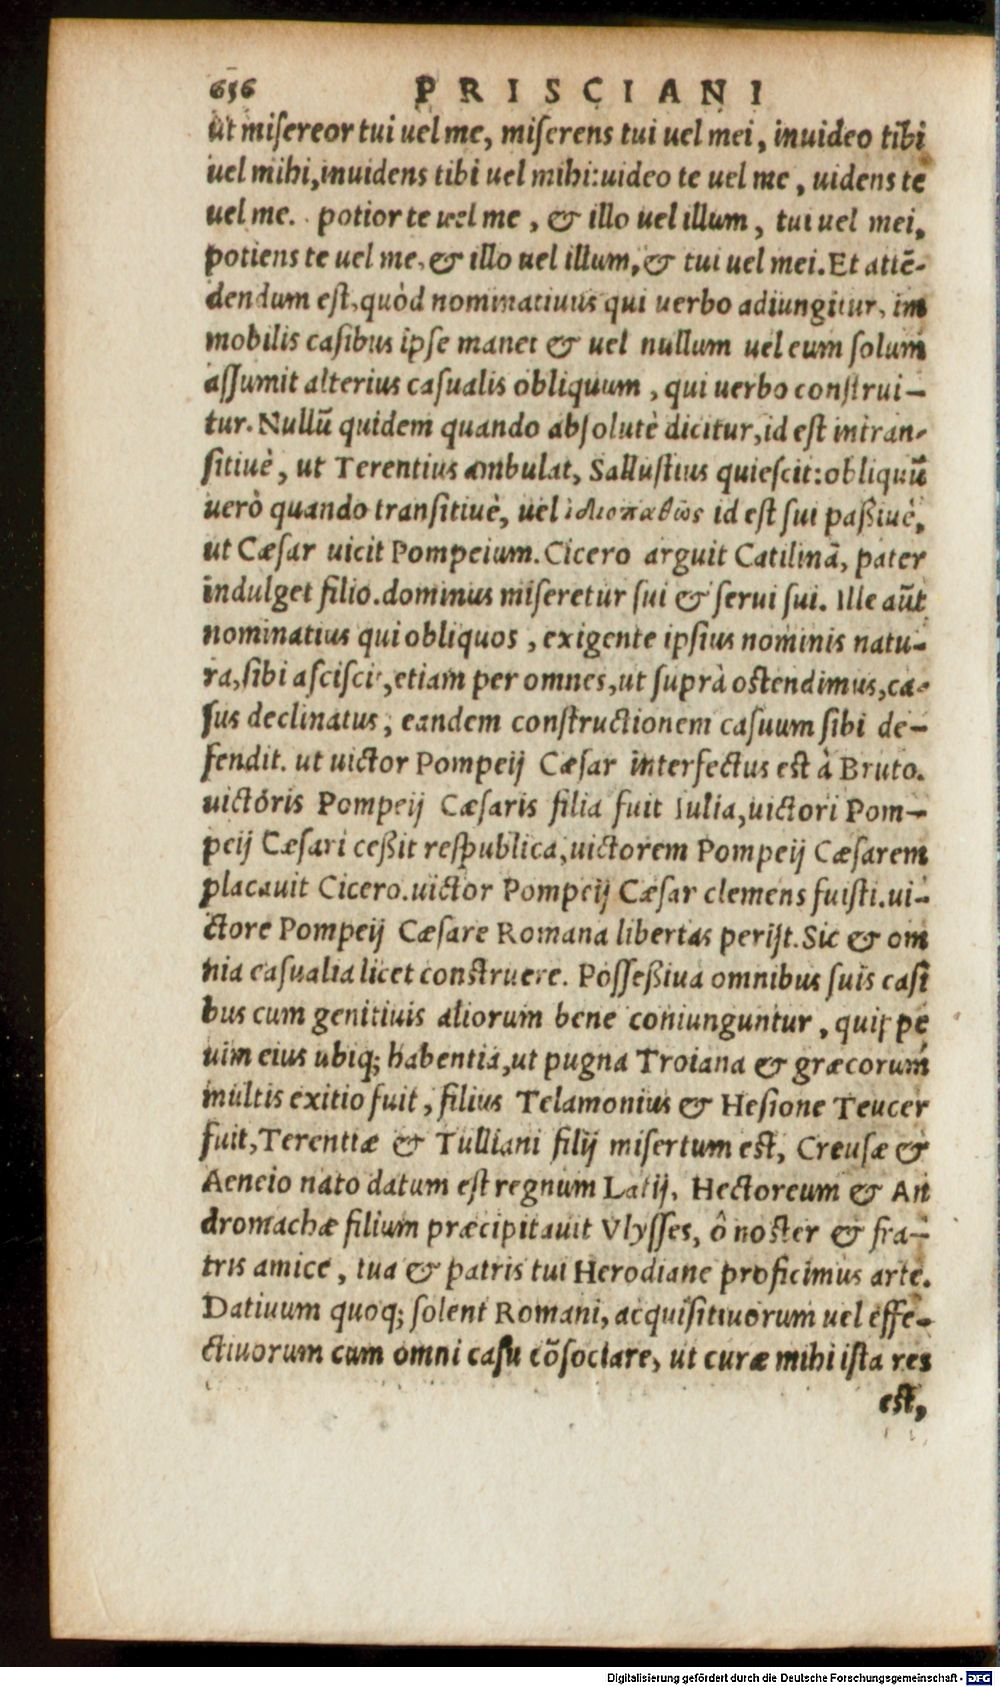 656 PRISCIANI
ut misereor tui uel me, miserens tui uel mei, inuideo tibi
uel mihi, inuidens tibi uel mihi: uideo te uel me, uidens te
uel me. potior te uel me, & illo uel illum, tui uel mei,
potiens te uel me, & illo uel illum, & tui uel mei. Et attē-
dendum est, quòd nominatiuus qui uerbo adiungitur, im
mobilis casibus ipse manet & uel nullum uel eum solum
assumit alterius casualis obliquum, qui uerbo construi-
tur. Nullū quidem quando absolutè dicitur, id est intran-
sitiuè, ut Terentius ambulat, Sallustius quiescit: obliquū
uerò quando transitiuè, uel ἰδιοπαθῶς id est sui paßiuè,
ut Cæsar uicit Pompeium. Cicero arguit Catilinā, pater
indulget filio. dominus miseretur sui & serui sui. Ille aūt
nominatius qui obliquos, exigente ipsius nominis natu-
ra, sibi asciscit, etiam per omnes, ut suprà ostendimus, ca-
sus declinatus, eandem constructionem casuum sibi de-
fendit. ut uictor Pompeij Cæsar interfectus est à Bruto.
uictóris Pompeij Cæsaris filia fuit Iulia, uictori Pom-
peij Cæsari ceßit respublica, uictorem Pompeij Cæsarem
placauit Cicero. uictor Pompeij Cæsar clemens fuisti. ui-
ctore Pompeij Cæsare Romana libertas perijt. Sic & om
nia casualia licet construere. Posseßiua omnibus suis casi
bus cum genitiuis aliorum bene coniunguntur, quippe
uim eius ubiq; habentia, ut pugna Troiana & græcorum
multis exitio fuit, filius Telamonius & Hesione Teucer
fuit, Terentiæ & Tulliani filij misertum est, Creusæ &
Aeneio nato datum est regnum Latij, Hectoreum & An
dromachæ filium præcipitauit Vlysses, ô noster & fra-
tris amice, tua & patris tui Herodiane proficimus arte.
Datiuum quoq; solent Romani, acquisitiuorum uel effe-
ctiuorum cum omni casu cōsociare, ut curæ mihi ista res
est,
Digitalisierung gefördert durch die Deutsche Forschungsgemeinschaft - DFG